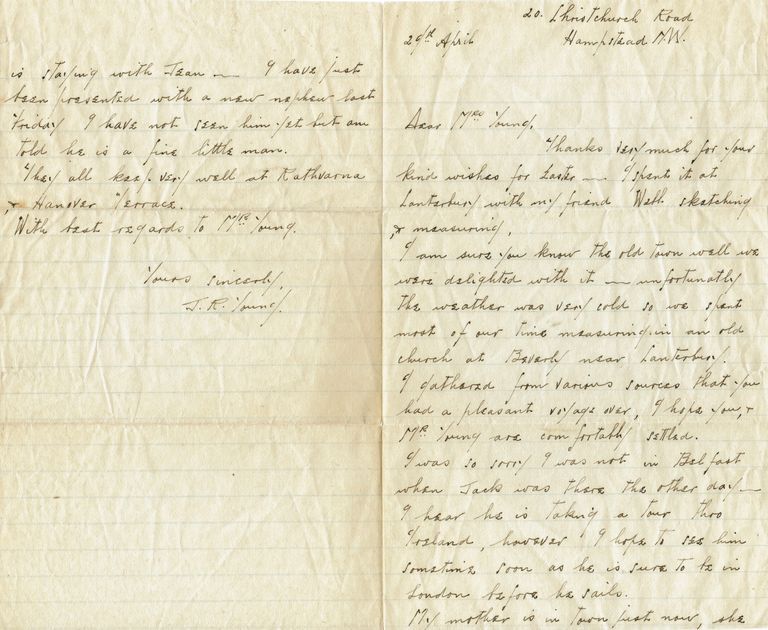 20. Christchurch Road
29th April
Hampstead N.W.
Dear Mrs Young,
Thanks very much for your
kind wishes for Easter — I spent it at
Canterbury with my friend Webb sketching
& measuring.
I am sure you know the old town well we
were delighted with it — unfortunatly
the weather was very cold so we spent
most of our time measuring in an old
church at Beverly near Canterbury.
I gathered from various sources that you
had a pleasant voyage over, I hope you, &
Mr Young are comfortably settled.
I was so sorry I was not in Belfast
when Jack was there the other day —
I hear he is taking a tour thro
Ireland, however I hope to see him
sometime soon as he is sure to be in
London before he sails.
My mother is in town just now, she
is staying with Jean — I have just
been presented with a new nephew last
Friday I have not seen him yet but am
told he is a fine little man.
They all keep very well at Rathvarna
& Hanover Terrace.
With best regards to Mr Young.
Yours sincerly,
J. R. Young.